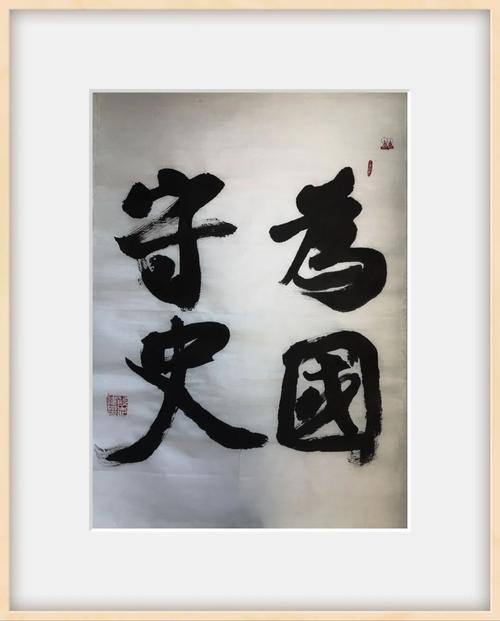 為國
守史